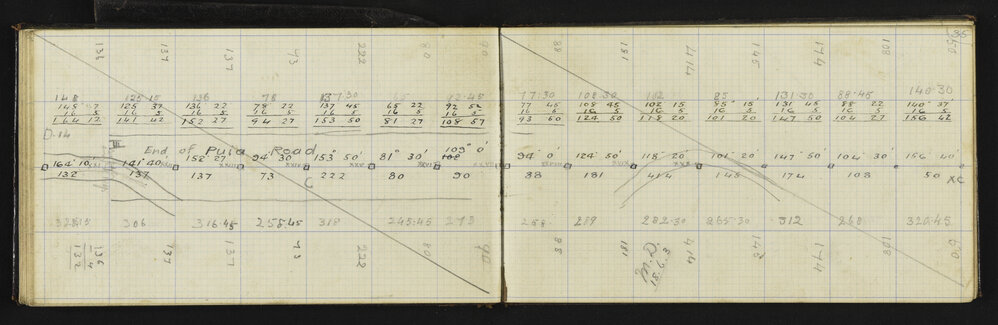 35
136 137 137 73 222 80 90 88 181 414 145 174 108 50
148 125·15 136 78 137·30 65 92·45 77·30 108·30 102 85 131·30 88·45 140·30
148 7 125 37 136 22 78 22 137 45 65 22 92 52 77 45 108 45 102 15 85 15 131 45 88 22 140 37
16 5 16 5 16 5 16 5 16 5 16 5 16 5 16 5 16 5 16 5 16 5 16 5 16 5 16 5
164 12 141 42 152 27 94 27 153 50 81 27 108 57 93 50 124 50 118 20 101 20 147 50 104 27 156 42
D.14
End of Puia Road
109° 0'
164° 10' 141° 40' 152° 27' 94° 30' 153° 50' 81° 30' 108 94° 0' 124° 50' 118° 20' 101° 20' 147° 50' 104° 30' 156° 40'
132 137 137 73 222 80 90 88 181 414 145 174 108 50 XC
328·15 306 316·45 258·45 318 245·45 273 258 289 282·30 265·30 312 268 320·45
136 137 137 73 222 80 90 88 181 414 145 174 108 50
4
132
M.D.
15.6.3